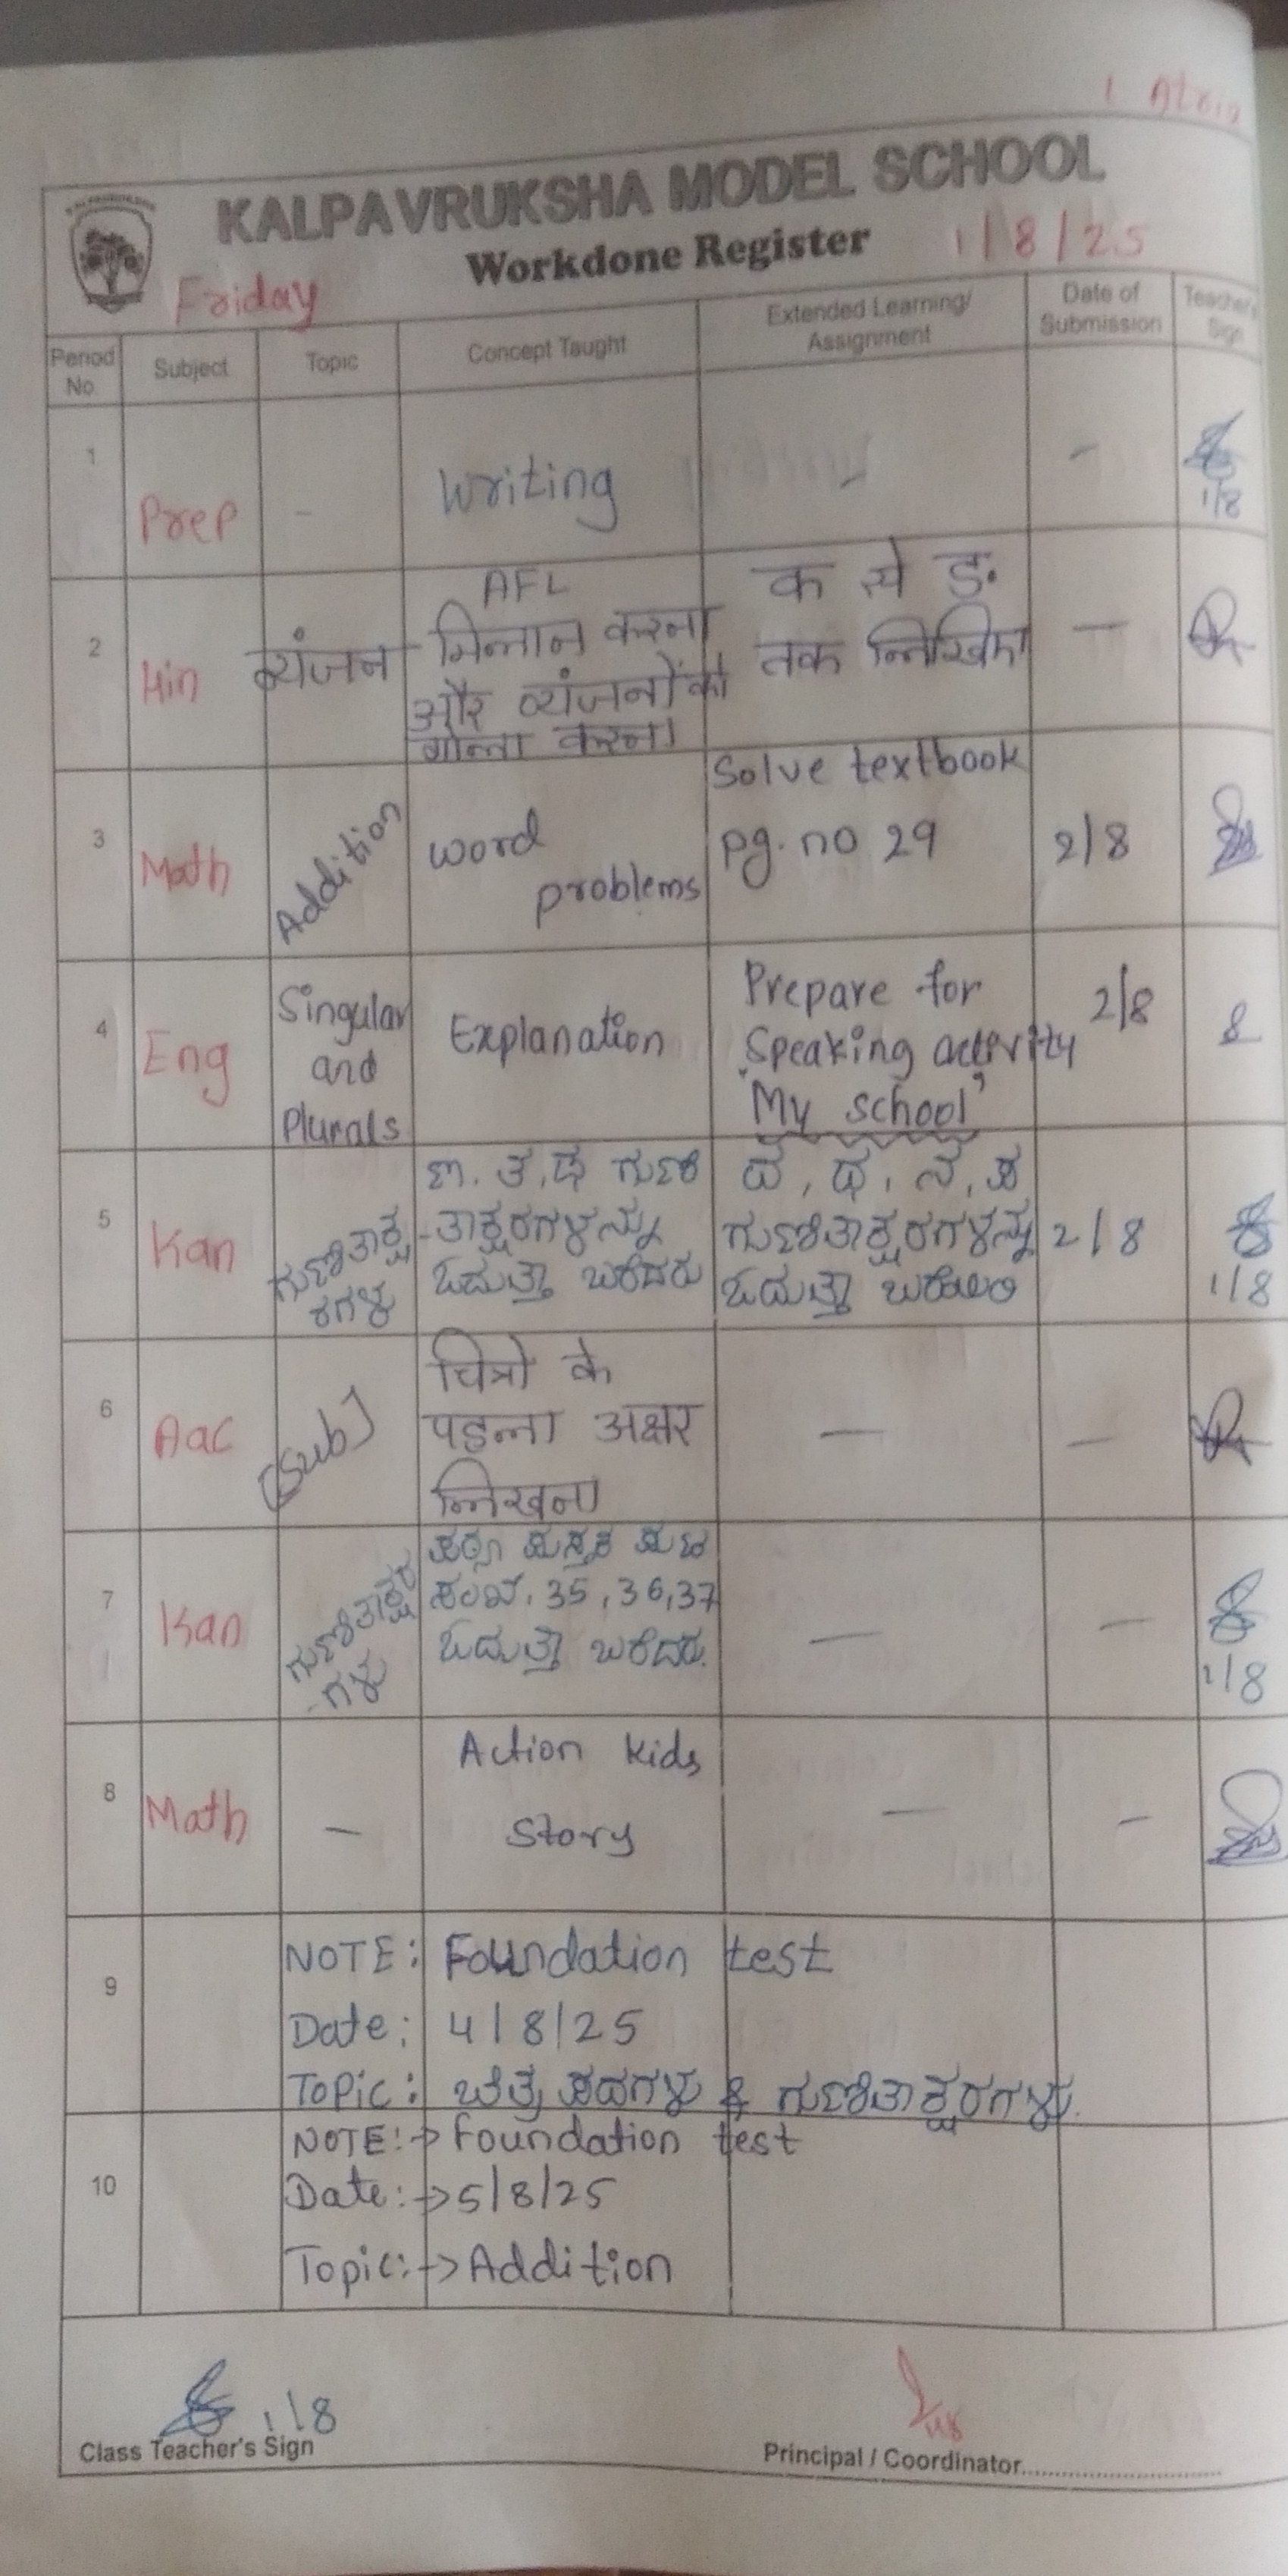 KALPAVRUKSHA MODEL SCHOOL
Workdone Register
1/8/25
Friday
Period No. Subject Topic Concept Taught Extended Learning/ Assignment Date of Submission Teacher's Sign
1 Prep - Writing - -
1/8
2 Hin व्यंजन AFL
मिलान करना
और व्यंजनों को
गोला करना
क से ङ.
तक लिखिए
—
3 Math Addition word
problems
Solve textbook
pg. no 29
2/8
4 Eng Singular
and
Plurals
Explanation
Prepare for
Speaking activity
'My school'
2/8
5 Kan ಗುಣಿತಾಕ್ಷ
ರಗಳು
ಣ. ತ, ಥ ಗುಣಿ
-ತಾಕ್ಷರಗಳನ್ನು
ಓದುತ್ತಾ ಬರೆದರು
ದ, ಧ, ನ, ಪ
ಗುಣಿತಾಕ್ಷರಗಳನ್ನು
ಓದುತ್ತಾ ಬರೆಯಿರಿ
2/8
1/8
6 Aac (Sub)
चित्रो के
पहला अक्षर
लिखना
— —
7 Kan ಗುಣಿತಾಕ್ಷರ
-ಗಳು
ಪಠ್ಯ ಪುಸ್ತಕ ಪುಟ
ಸಂಖ್ಯೆ. 35, 36, 37
ಓದುತ್ತಾ ಬರೆದರು.
— —
1/8
8 Math — Action kids
Story
— —
9 NOTE: Foundation test
Date: 4/8/25
Topic: ಚಿತ್ರ ಪದಗಳು & ಗುಣಿತಾಕ್ಷರಗಳು.
10 NOTE:-> Foundation test
Date:-> 5/8/25
Topic:-> Addition
1/8
Class Teacher's Sign
Principal / Coordinator